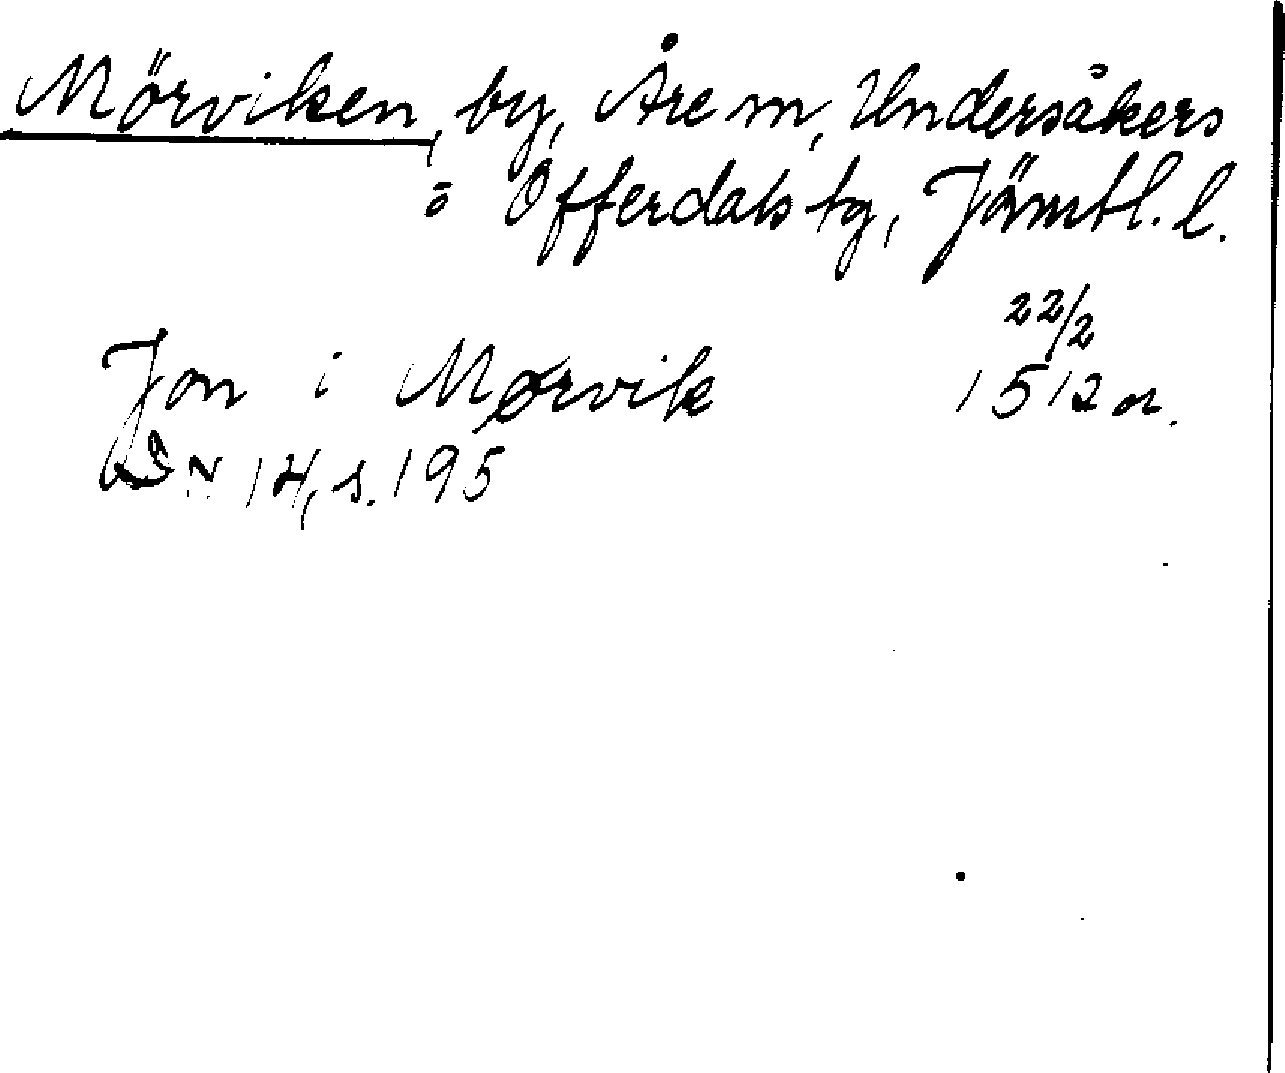 Mörviken, by, Åre sn, Undersåkers
o Offerdals tg, Jämtl. l.
22/2
Jon i Mørvik 1512 or.
DN 14, s. 195